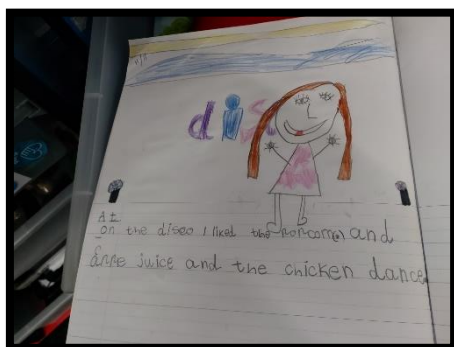 dis
At
on the disco I liked the and
juice and the chicken dance